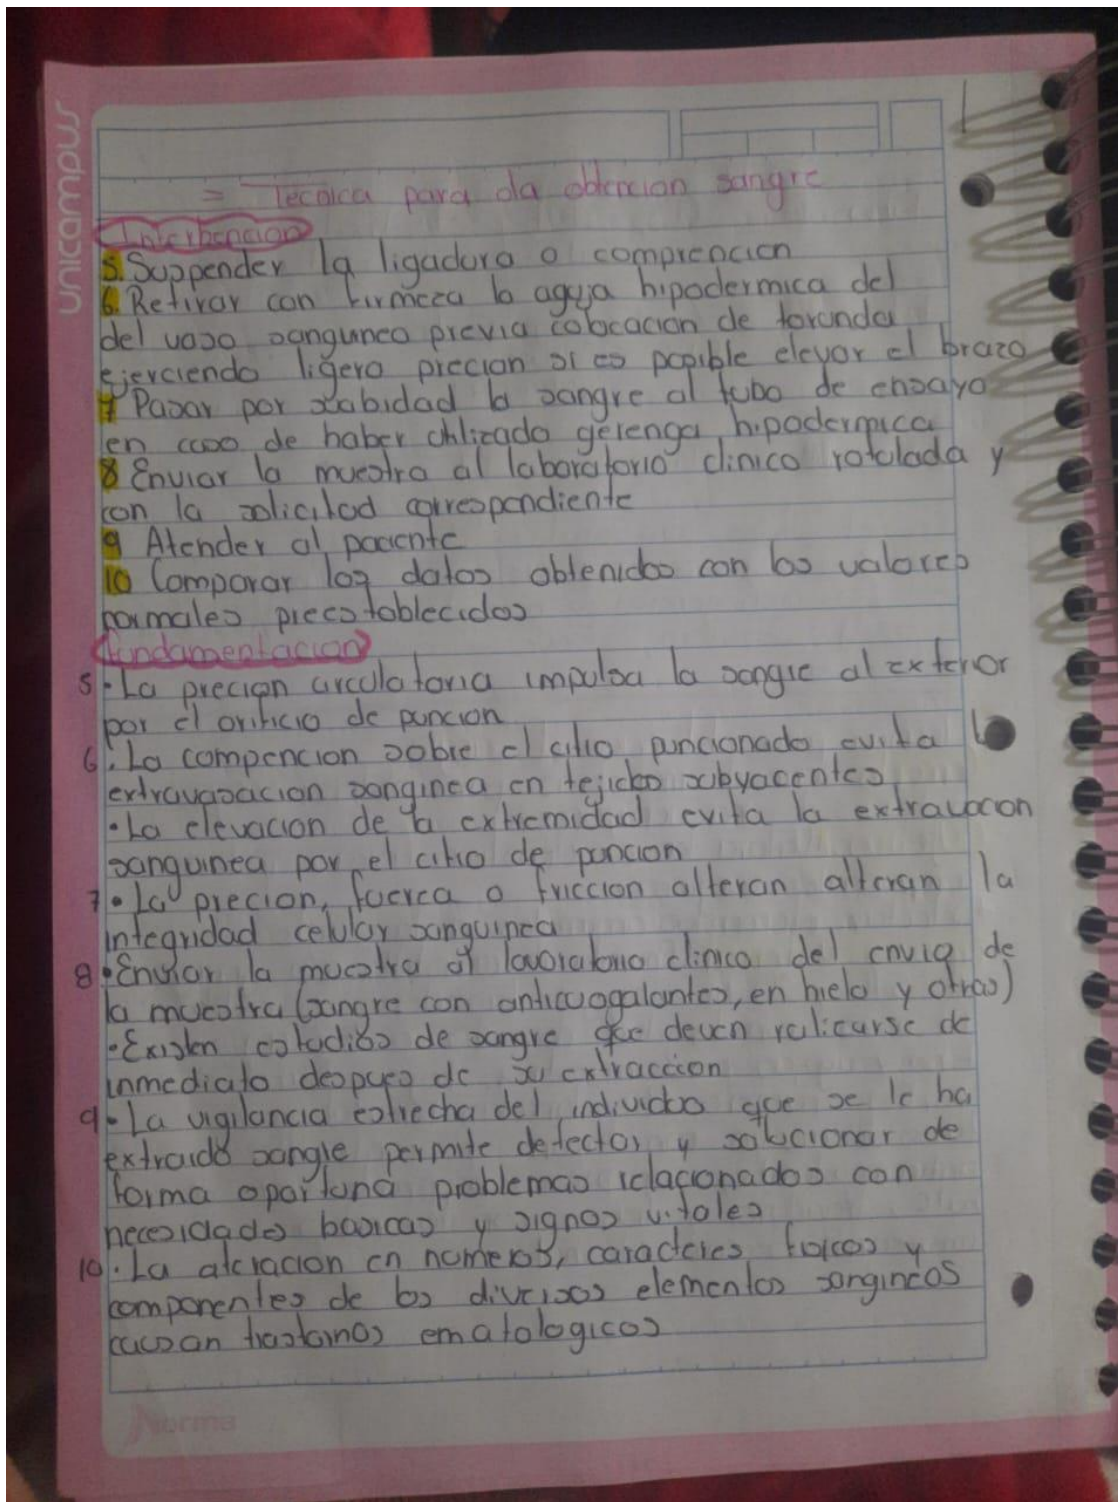 unicampus
= Tecnica para da obtencion sangre
Interbencion
5. Suspender la ligadura o comprencion
6. Retirar con firmeza la aguja hipodermica del
del vaso sanguineo previa colocacion de torunda
ejerciendo ligera precion si es posible elevar el brazo
7 Pasar por la sangre al tubo de ensayo
en caso de haber gerenga hipodermica
8 Enviar la muestra al laboratorio clinico rotulada y
con la solicitud correspondiente
9 Atender al paciente
10 Comparar los datos obtenidos con los valores
normales preestablecidos
fundamentacion
5 • La precion circulatoria impulsa la sangre al exterior
por el orificio de puncion
6 • La compencion sobre el citio puncionado evita
extravasacion sanginea en tejidos subyacentes
• La elevacion de la extremidad evita la extravacion
sanguinea por el citio de puncion
7 • La precion, fuerca o friccion alteran alteran la
integridad celular sanguinea
8 • Enviar la muestra al lavoratorio clinico del envio de
la muestra (sangre con anticuogalantes, en hielo y otras)
• Existen estudios de sangre que deven ralicarse de
inmediato despues de su extraccion
9 • La vigilancia estrecha del individuo que se le ha
extraido sangre permite detectar y solucionar de
forma oportuna problemas relacionados con
necesidades basicas y signos vitales
10 • La alteracion en numeros, caracteres fisicos y
componentes de los diversos elementos sangineos
causan trastornos ematologicos
Norma